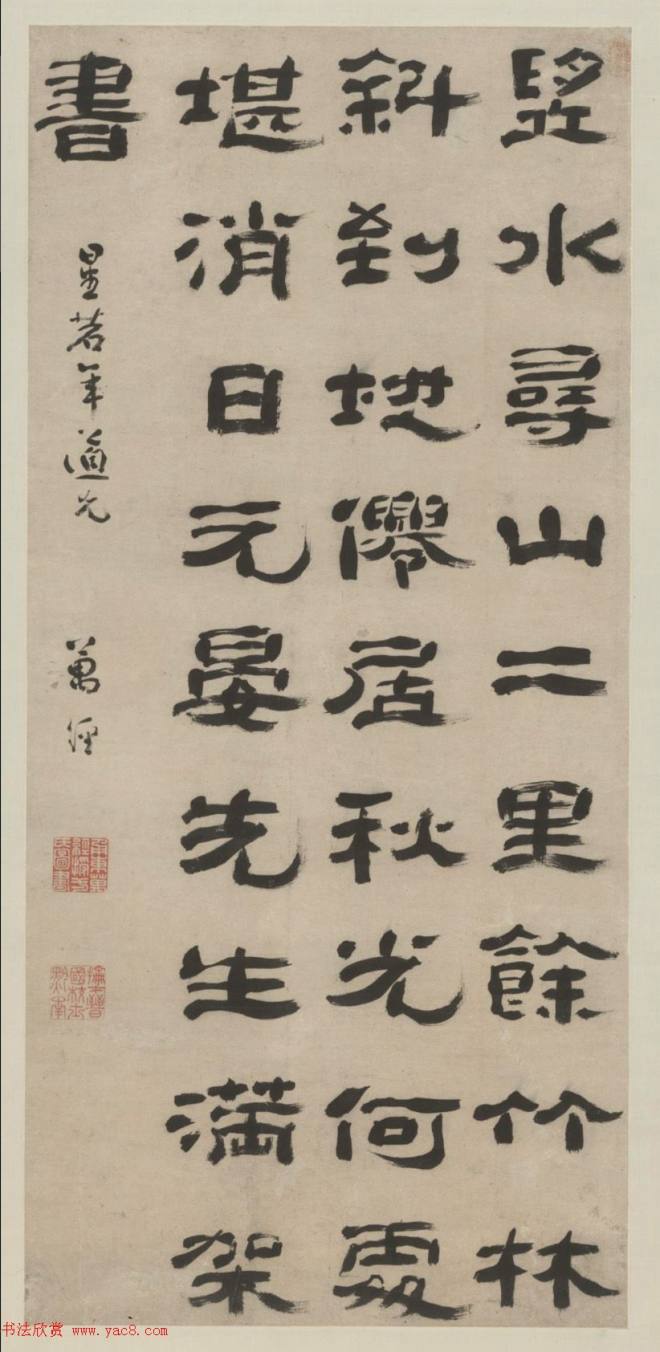 朢水尋山二里餘竹林
斜到地僊居秋光何處
堪消日元晏先生滿架
書
星若年道兄 萬經
书法欣赏 www.yac8.com